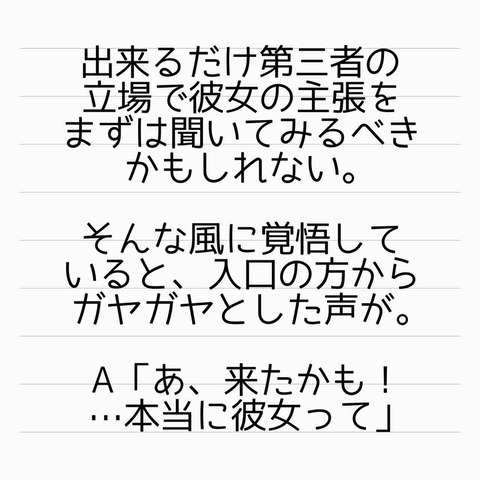 出来るだけ第三者の
立場で彼女の主張を
まずは聞いてみるべき
かもしれない。
そんな風に覚悟して
いると、入口の方から
ガヤガヤとした声が。
A「あ、来たかも！
…本当に彼女って」